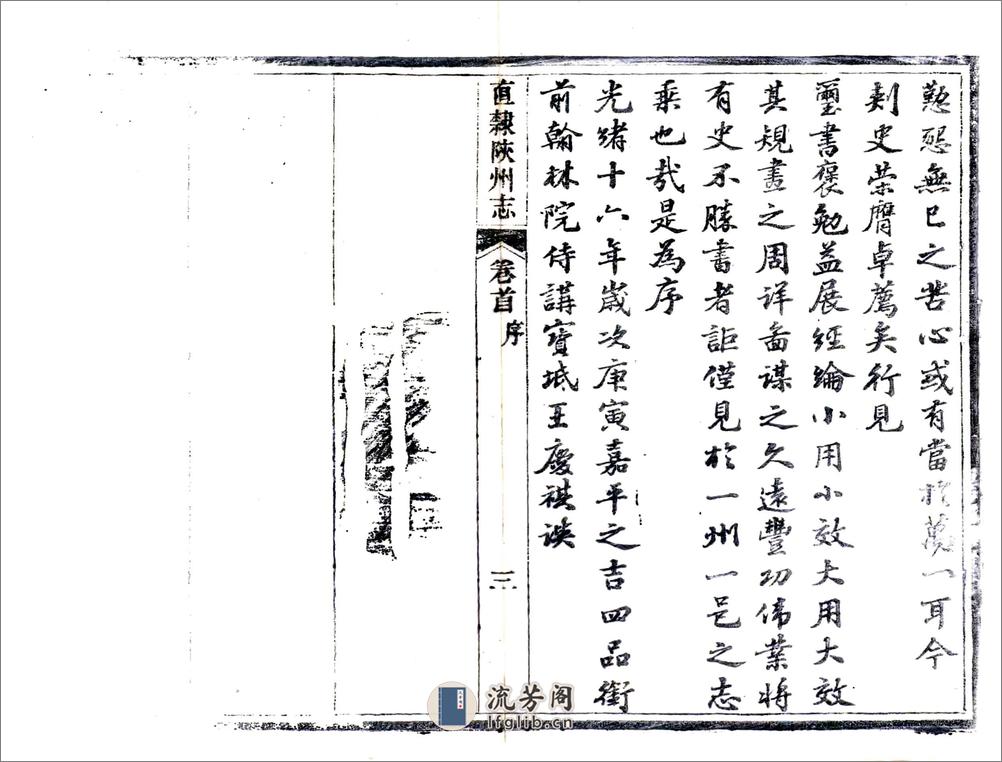 懃懇無已之苦心或有當於萬一耳今
刺史榮膺卓薦矣行見
璽書褒勉益展經綸小用小效大用大效
其規畫之周詳啚謀之久遠豐功偉業將
有史不勝書者詎僅見於一州一邑之志
乘也哉是為序
光緒十六年歲次庚寅嘉平之吉四品銜
前翰林院侍講寶坻王慶祺譔
直隸陝州志
卷首
序
三
流芳阁
lfglib.cn